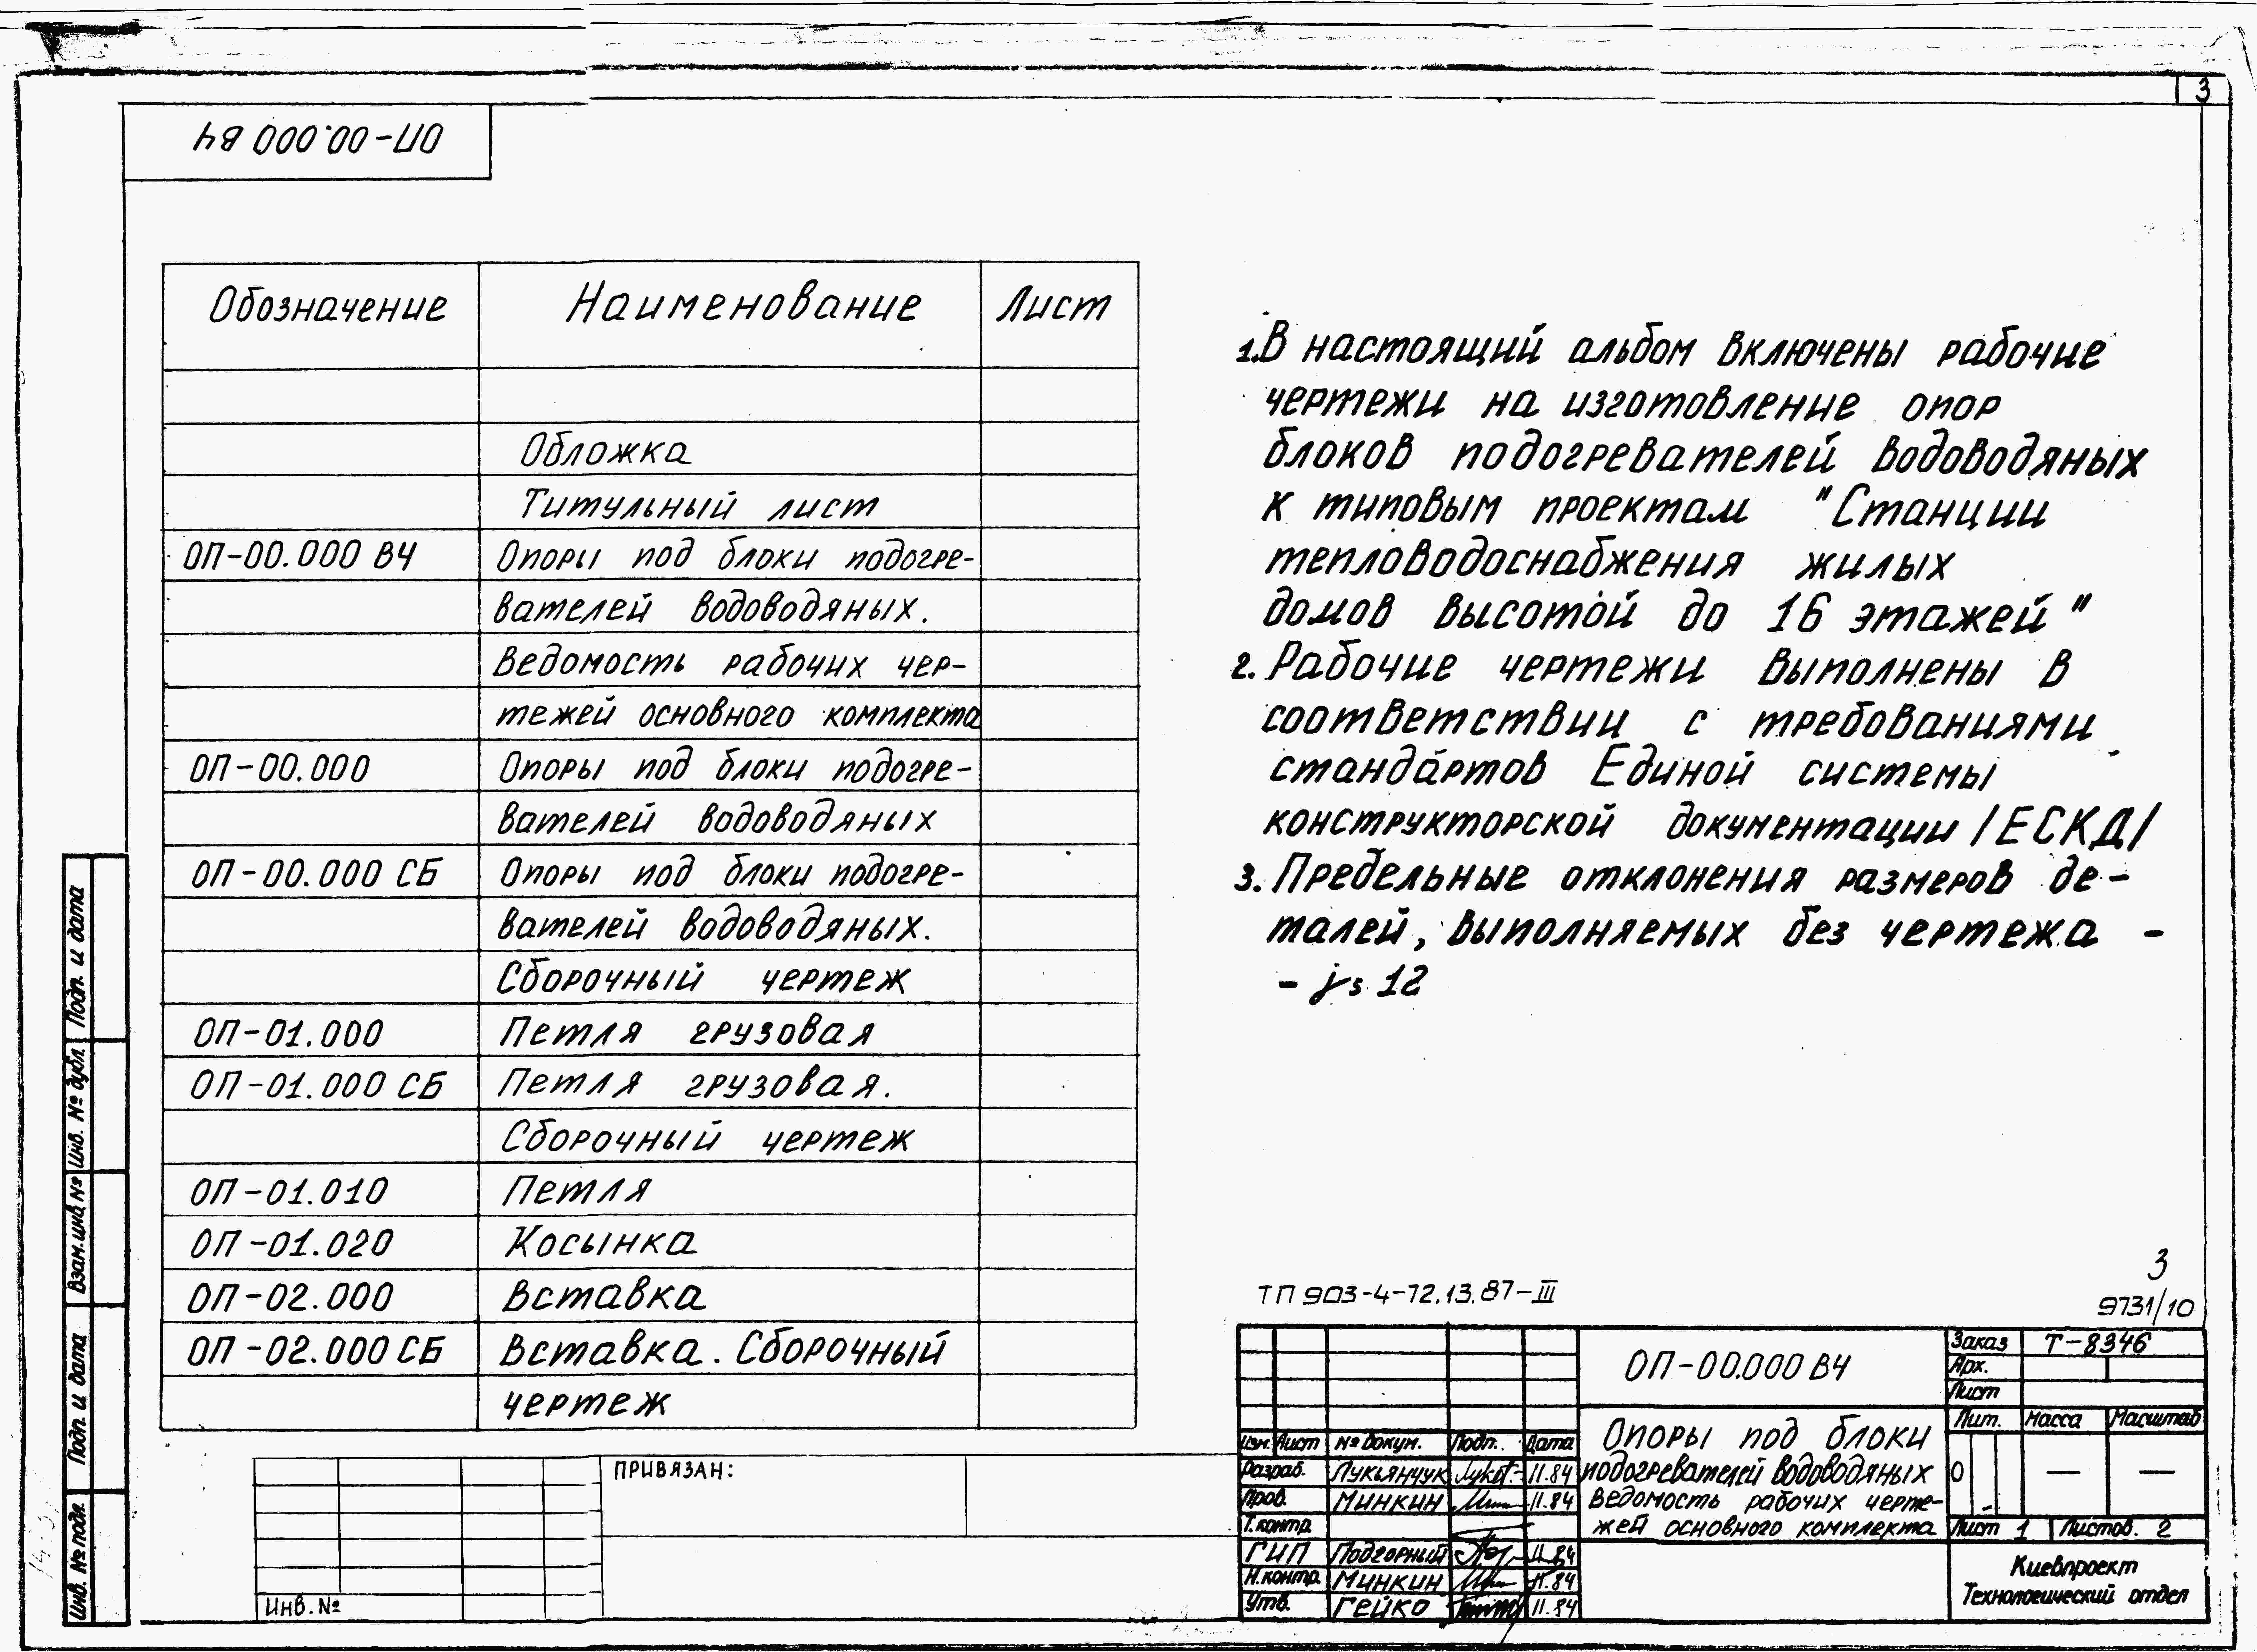 3
ОП-00.000 ВЧ
Обозначение Наименование Лист
Обложка
Титульный лист
ОП-00.000 ВЧ Опоры под блоки подогре-
вателей водоводяных.
Ведомость рабочих чер-
тежей основного комплекта
ОП-00.000 Опоры под блоки подогре-
вателей водоводяных
ОП-00.000 СБ Опоры под блоки подогре-
вателей водоводяных.
Сборочный чертеж
ОП-01.000 Петля грузовая
ОП-01.000 СБ Петля грузовая.
Сборочный чертеж
ОП-01.010 Петля
ОП-01.020 Косынка
ОП-02.000 Вставка
ОП-02.000 СБ Вставка. Сборочный
чертеж
1. В настоящий альбом включены рабочие
чертежи на изготовление опор
блоков подогревателей водоводяных
к типовым проектам "Станции
тепловодоснабжения жилых
домов высотой до 16 этажей"
2. Рабочие чертежи выполнены в
соответствии с требованиями
стандартов Единой системы
конструкторской документации /ЕСКД/
3. Предельные отклонения размеров де-
талей, выполняемых без чертежа -
- js 12
ТП 903-4-72.13.87-III
3
9731/10
ОП-00.000 ВЧ
Заказ Т-8346
Арх.
Лист
Лит. Масса Масштаб
О — —
Лист 1 Листов. 2
Опоры под блоки
подогревателей водоводяных
Ведомость рабочих черте-
жей основного комплекта
Киевпроект
Технологический отдел
Изм. Лист № докум. Подп. Дата
Разраб. Лукьянчук 11.84
Пров. Минкин 11.84
Т.контр.
ГИП Подгорный 11.84
Н.контр. Минкин 11.84
Утв. Гейко 11.84
ПРИВЯЗАН:
Инв. №
Подп. и дата
Инв. № дубл
Взам. инв №
Подп. и дата
Инв. № подл.